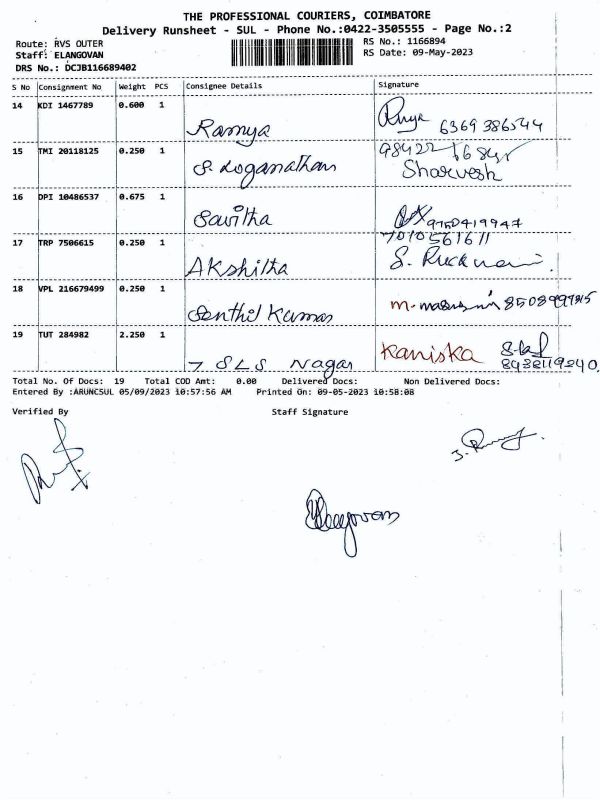 THE PROFESSIONAL COURIERS, COIMBATORE
Delivery Runsheet - SUL - Phone No.:0422-3505555 - Page No.:2
Route: RVS OUTER RS No.: 1166894
Staff: ELANGOVAN RS Date: 09-May-2023
DRS No.: DCJB116689402
S No Consignment No Weight PCS Consignee Details Signature
14 KDI 1467789 0.600 1
Ramya 6369386544
15 TMI 20118125 0.250 1
S. Loganathan Sharvesh
16 DPI 10486537 0.675 1
Savitha 9750419947
17 TRP 7506615 0.250 1 7010561611
Akshitha
18 VPL 216679499 0.250 1
Senthil Kumar
19 TUT 284982 2.250 1
7 SLS Nagar Kaniska
Total No. Of Docs: 19 Total COD Amt: 0.00 Delivered Docs: Non Delivered Docs:
Entered By :ARUNCSUL 05/09/2023 10:57:56 AM Printed On: 09-05-2023 10:58:08
Verified By Staff Signature
Elangovan